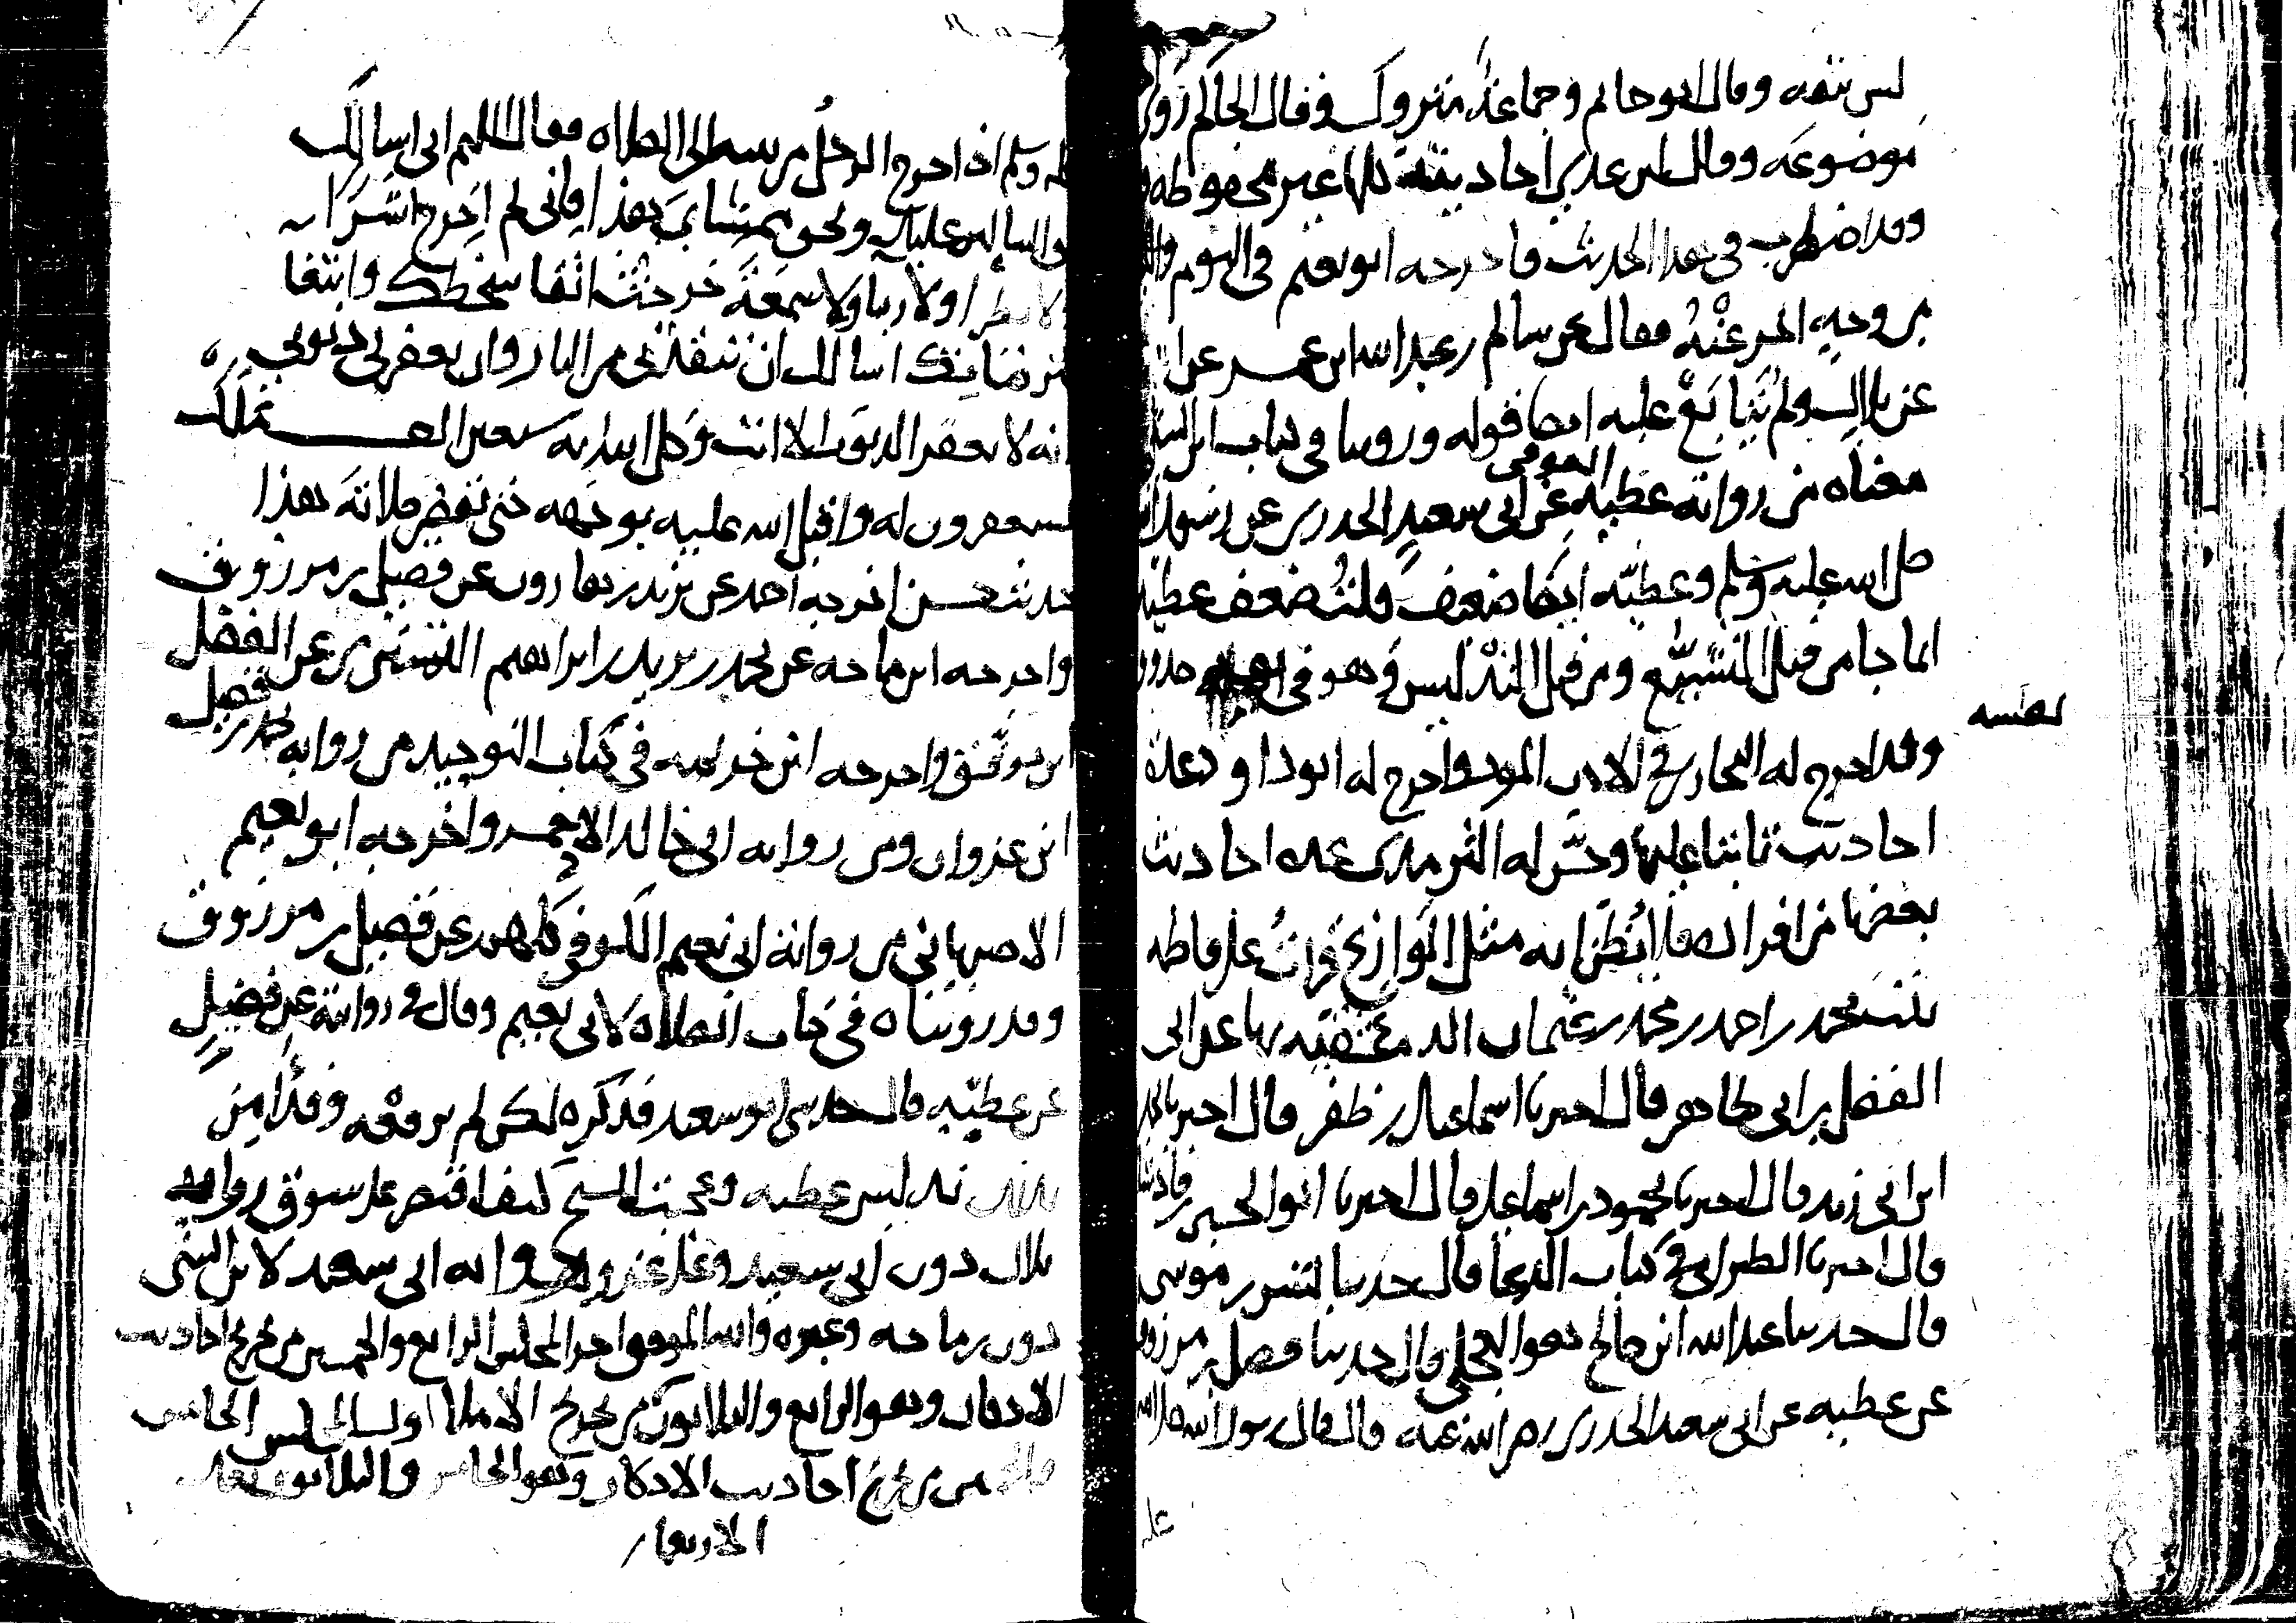 ليس بثقه وقال ابو حاتم وجماعة متروك وقال الحاكم روى
موضوعه وقال ابن عدي احاديثه كلها غير محفوظه
وقد اضطرب في هذا الحديث فاخرجه ابو نعيم في اليوم والليلة
من وجه اخر عنه فقال عن سالم بن عبد الله ابن عمر عن ابيه
عن بلال ولم يتابع عليه ايضا قوله وروينا في كتاب ابن السني
معناه من رواية عطيه العوفي عن ابي سعيد الخدري عن رسول الله
صلى الله عليه وسلم وعطيه ايضا ضعيف قلت ضعف عطيه
انما جا من قبل التشيع ومن قبل التدليس وهو في نفسه صدوق
نفسه
وقد اخرج له البخاري في الادب المفرد واخرج له ابو داود عدة
احاديث ساكتا عليها وحسن له الترمذي عدة احاديث
بعضها من افراده فلا يظن انه مثل الوازع قرات على فاطمه
بنت محمد بن احمد بن محمد بن عثمان الدمشقيه بها عن ابي
الفضل بن ابي طاهر قال اخبرنا اسماعيل بن ظفر قال اخبرنا محمد
ابن ابي زيد قال اخبرنا محمود بن اسماعيل قال اخبرنا ابو الحسين بن فاذشاه
قال اخبرنا الطبراني في كتاب الدعا قال حدثنا بشر بن موسى
قال حدثنا عبد الله ابن صالح هو العجلي قال حدثنا فضيل بن مرزوق
عن عطيه عن ابي سعيد الخدري رضي الله عنه قال قال رسول الله صلى الله
عليه
عليه وسلم اذا خرج الرجل من بيته الى الصلاه فقال اللهم اني اسالك
بحق السائلين عليك وبحق ممشاي هذا فاني لم اخرج اشرا
ولا بطرا ولا ريا ولا سمعة خرجت اتقا سخطك وابتغا
مرضاتك اسالك ان تنقذني من النار وان تغفر لي ذنوبي
انه لا يغفر الذنوب الا انت وكل الله به سبعين الف ملك
يستغفرون له واقبل الله عليه بوجهه حتى يقضي صلاته هذا
حديث حسن اخرجه احمد عن يزيد بن هارون عن فضيل بن مرزوق
واخرجه ابن ماجه عن محمد بن يزيد بن ابراهيم التستري عن الفضل
ابن موفق واخرجه ابن خزيمه في كتاب التوحيد من روايه محمد بن فضيل
ابن غزوان ومن روايه ابي خالد الاحمر واخرجه ابو نعيم
الاصبهاني من رواية ابي نعيم الكوفي كلهم عن فضيل بن مرزوق
وقد رويناه في كتاب الصلاه لابي نعيم وقال في روايته عن فضيل
عن عطيه قال حدثني ابو سعيد فذكره لكن لم يرفعه وقد امن
بذلك تدليس عطيه وعجبت للشيخ كيف اقتصر على سوق رواية
بلال دون ابي سعيد وعلى عزو رواية ابي سعيد لابن السني
دون ابن ماجه وغيره والله الموفق اخر المجلس الرابع والخمسين من تخريج احاديث
الاذكار وهو الرابع والثلاثون من تخريج الاملا اول المجلس الخامس
والخمسين من تخريج احاديث الاذكار وهو الخامس والثلاثون بعد
الاربعمايه